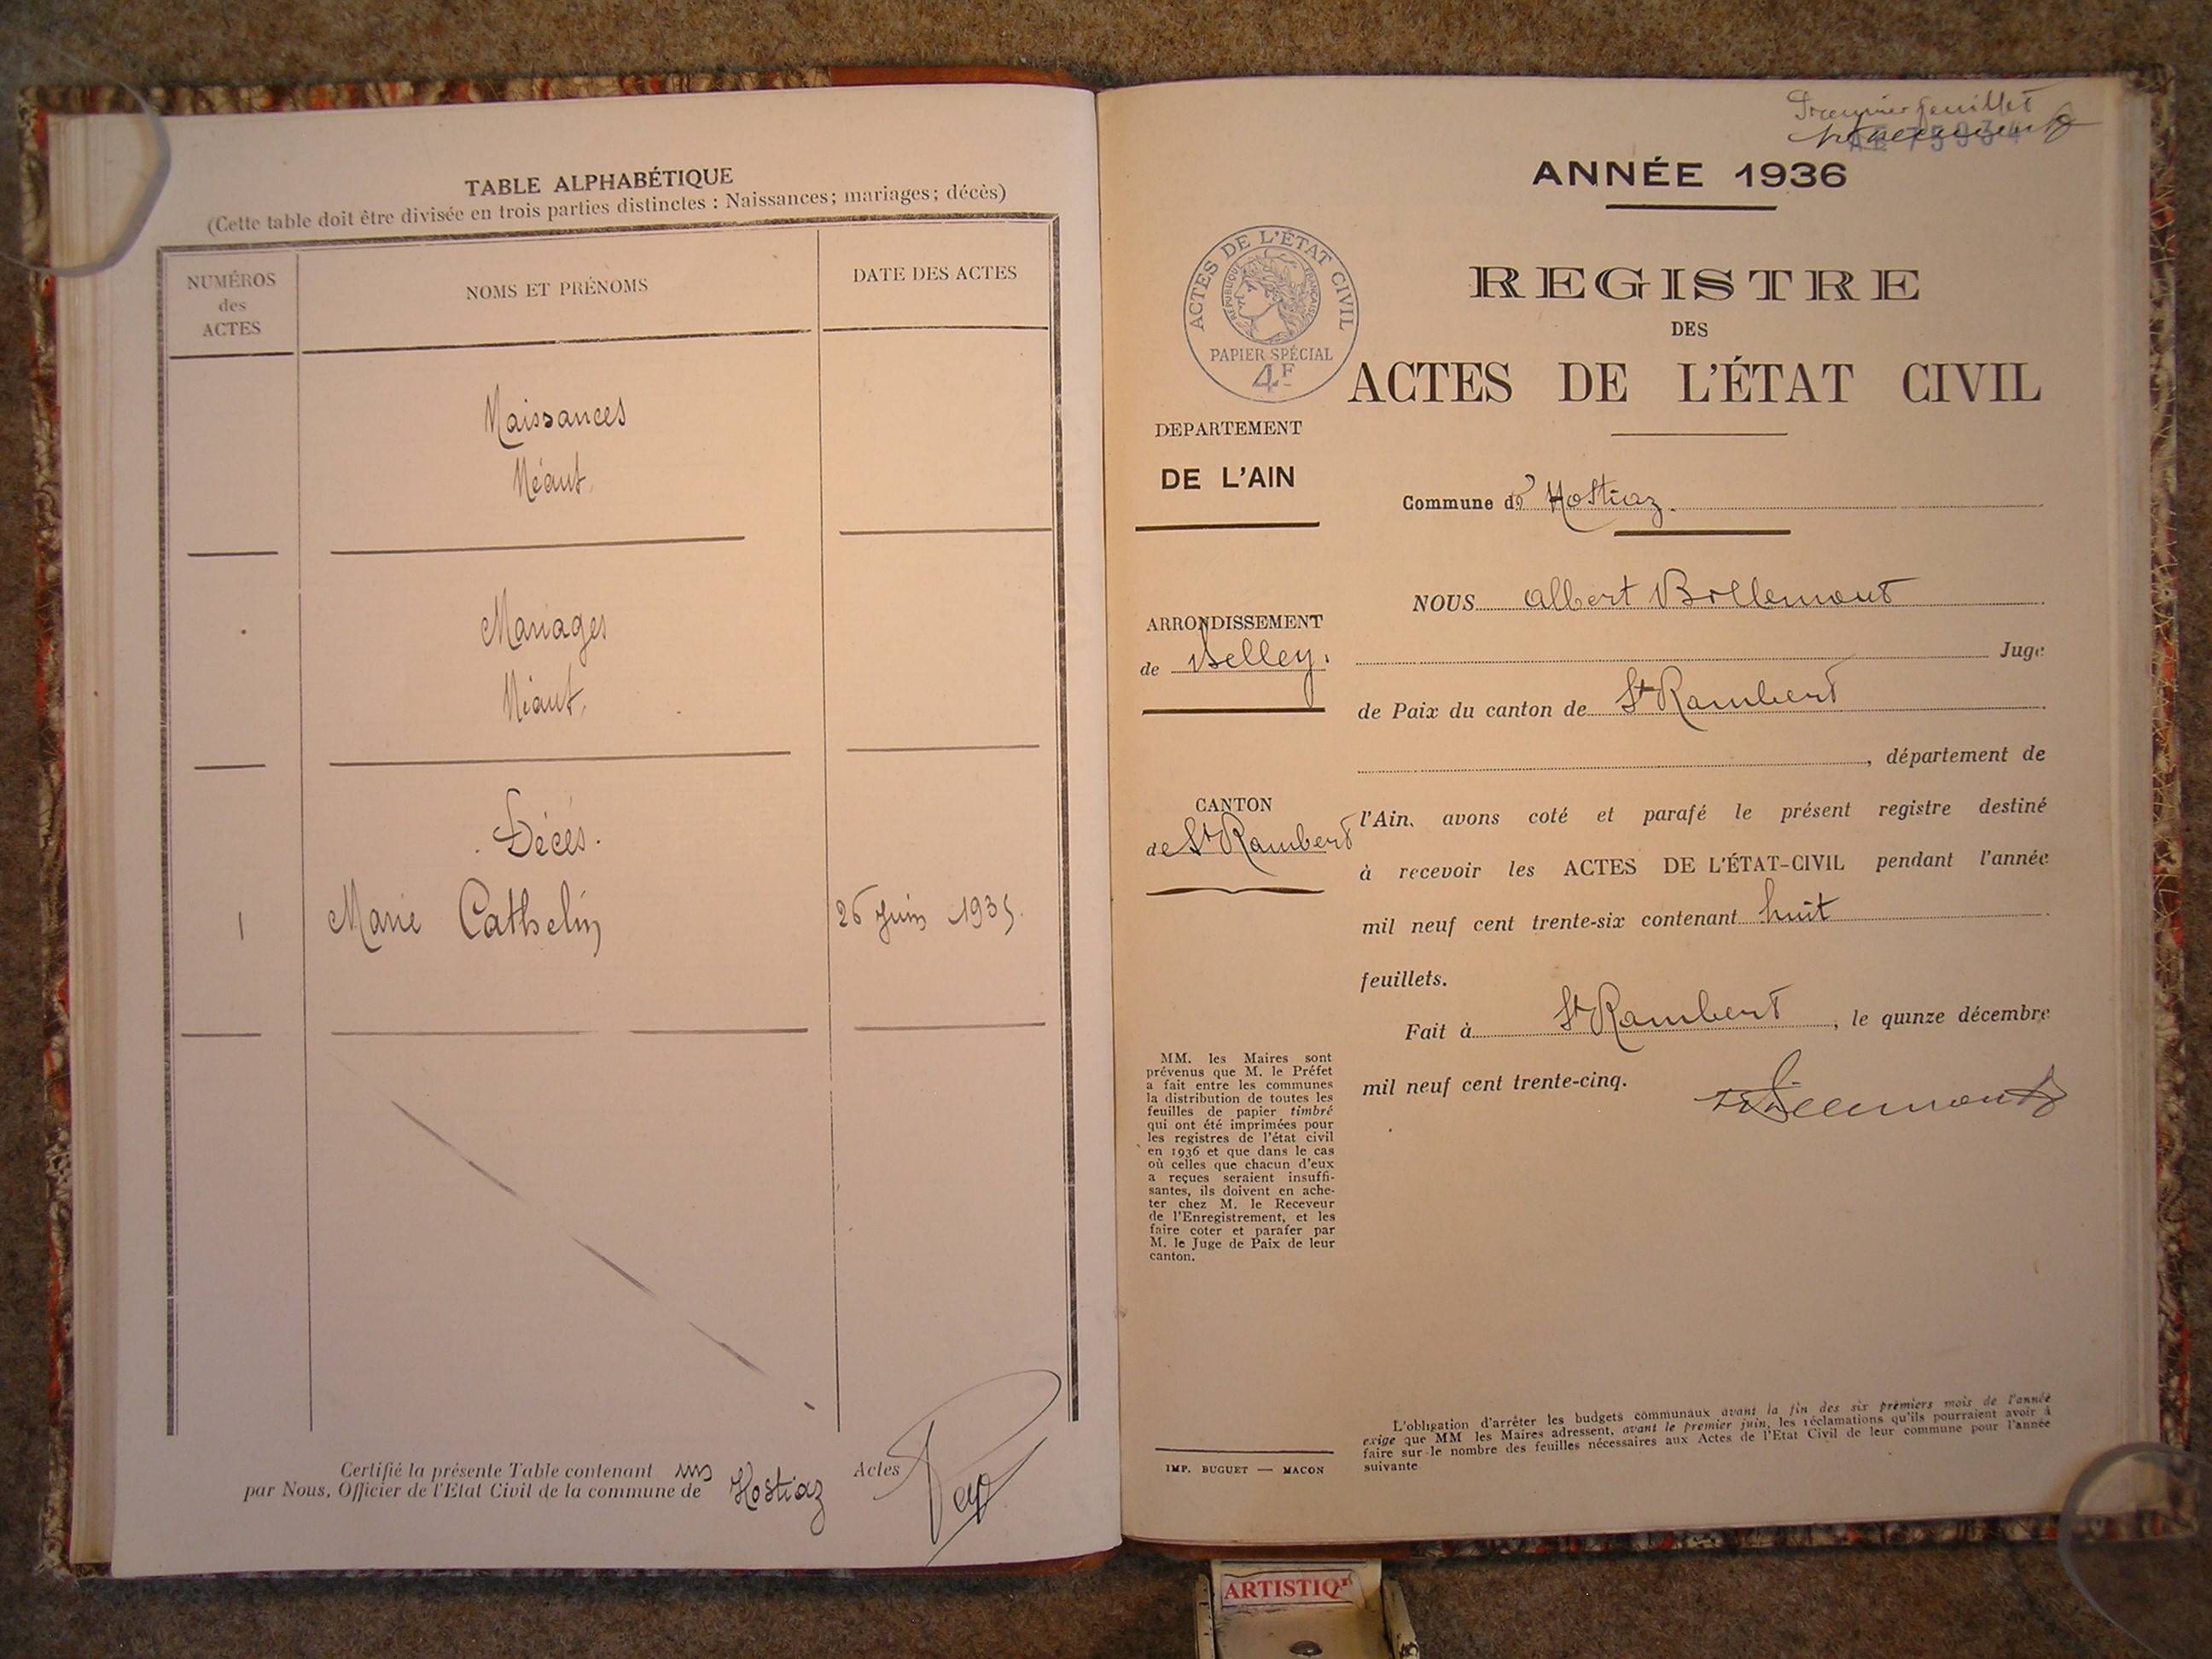 TABLE ALPHABÉTIQUE
(Cette table doit être divisée en trois parties distinctes : Naissances; mariages; décès)
NUMÉROS
des
ACTES
NOMS ET PRÉNOMS
DATE DES ACTES
Naissances
Néant.
Mariages
Néant.
Décès.
1 Marie Cathelin 26 Juin 1935.
Certifié la présente Table contenant un Actes
par Nous, Officier de l'Etat Civil de la commune de Hostiaz
Premier feuillet
ANNÉE 1936
ACTES DE L'ÉTAT CIVIL
RÉPUBLIQUE FRANÇAISE
PAPIER SPÉCIAL
4F
REGISTRE
DES
ACTES DE L'ÉTAT CIVIL
DEPARTEMENT
DE L'AIN
Commune d' Hostiaz.
ARRONDISSEMENT
de Belley.
CANTON
de St Rambert
NOUS Albert
Juge
de Paix du canton de St Rambert
, département de
l'Ain, avons coté et parafé le présent registre destiné
à recevoir les ACTES DE L'ÉTAT-CIVIL pendant l'année
mil neuf cent trente-six contenant huit
feuillets.
Fait à St Rambert, le quinze décembre
mil neuf cent trente-cinq.
MM. les Maires sont
prévenus que M. le Préfet
a fait entre les communes
la distribution de toutes les
feuilles de papier timbré
qui ont été imprimées pour
les registres de l'état civil
en 1936 et que dans le cas
où celles que chacun d'eux
a reçues seraient insuffi-
santes, ils doivent en ache-
ter chez M. le Receveur
de l'Enregistrement, et les
faire coter et parafer par
M. le Juge de Paix de leur
canton.
IMP. BUGUET — MACON
L'obligation d'arrêter les budgets communaux avant la fin des six premiers mois de l'année
exige que MM les Maires adressent, avant le premier juin, les réclamations qu'ils pourraient avoir à
faire sur le nombre des feuilles nécessaires aux Actes de l'Etat Civil de leur commune pour l'année
suivante
ARTISTIQ